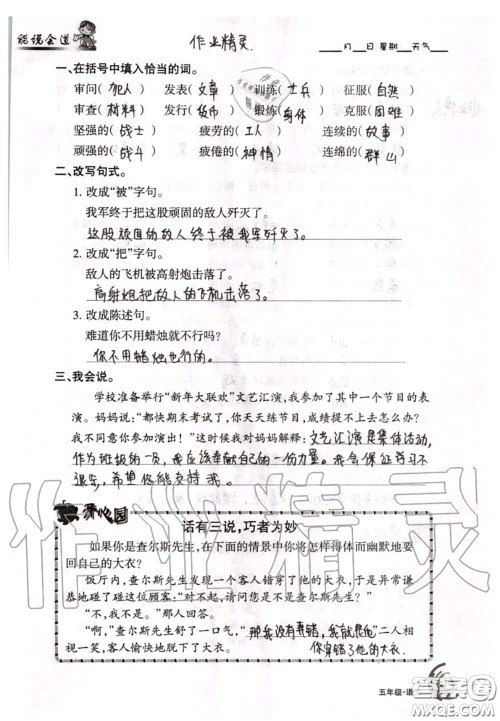 能说会道
作业精灵.
____月__日 星期__天气____
一、在括号中填入恰当的词。
审问( 犯人 ) 发表( 文章 ) 训练( 士兵 ) 征服( 自然 )
审查( 材料 ) 发行( 货币 ) 锻炼( 身体 ) 克服( 困难 )
坚强的( 战士 ) 疲劳的( 工人 ) 连续的( 故事 )
顽强的( 战斗 ) 疲倦的( 神情 ) 连绵的( 群山 )
二、改写句式。
1. 改成“被”字句。
我军终于把这股顽固的敌人歼灭了。
这股顽固的敌人终于被我军歼灭了。
2. 改成“把”字句。
敌人的飞机被高射炮击落了。
高射炮把敌人的飞机击落了。
3. 改成陈述句。
难道你不用蜡烛就不行吗?
你不用蜡烛也行的。
三、我会说。
学校准备举行“新年大联欢”文艺汇演,我参加了其中一个节目的表
演。妈妈说:“都快期末考试了,你天天练节目,成绩掉下去怎么办?
我不同意你参加演出!”这时候我对妈妈解释:文艺汇演是集体活动,
作为班级的一员,我应该奉献自己的一份力量。我会保证学习不
退步,希望你能支持我。
开心园
话有三说,巧者为妙
如果你是查尔斯先生,在下面的情景中你将怎样得体而幽默地要
回自己的大衣?
饭厅内,查尔斯先生发现一个客人错穿了他的大衣,他走过去谦
恭地碰了碰这位顾客:“对不起,请问您是不是查尔斯先生?”
“不,我不是。”那人回答。
“啊,”查尔斯先生舒了一口气,“那我没有弄错,我就是他”二人相
你穿错了他的大衣。
视一笑,客人愉快地脱下了大衣。
作业精灵
五年级·语
答案圈
MXQE.COM